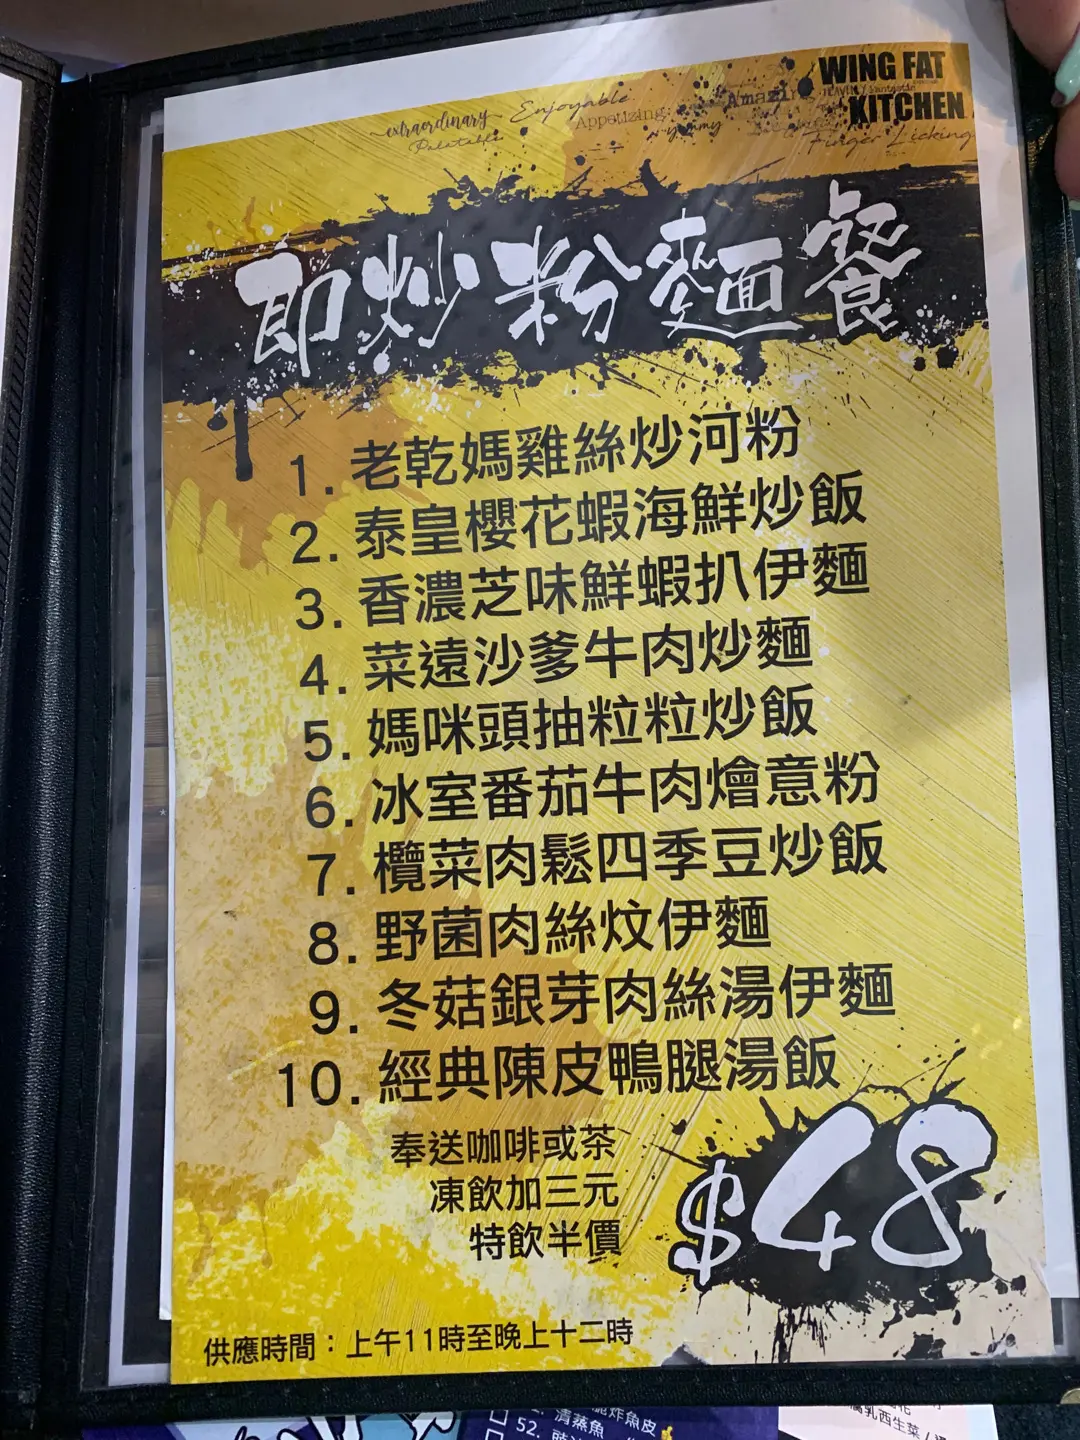 WING FAT
KITCHEN
extraordinary Enjoyable Appetizing
Palatable yummy Finger Licking
即炒粉麵餐
1. 老乾媽雞絲炒河粉
2. 泰皇櫻花蝦海鮮炒飯
3. 香濃芝味鮮蝦扒伊麵
4. 菜遠沙爹牛肉炒麵
5. 媽咪頭抽粒粒炒飯
6. 冰室番茄牛肉燴意粉
7. 欖菜肉鬆四季豆炒飯
8. 野菌肉絲炆伊麵
9. 冬菇銀芽肉絲湯伊麵
10. 經典陳皮鴨腿湯飯
奉送咖啡或茶
凍飲加三元
特飲半價
$48
供應時間：上午11時至晚上十二時
炸魚皮
清蒸魚
52.
腐乳西生菜 /